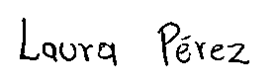 Laura Pérez